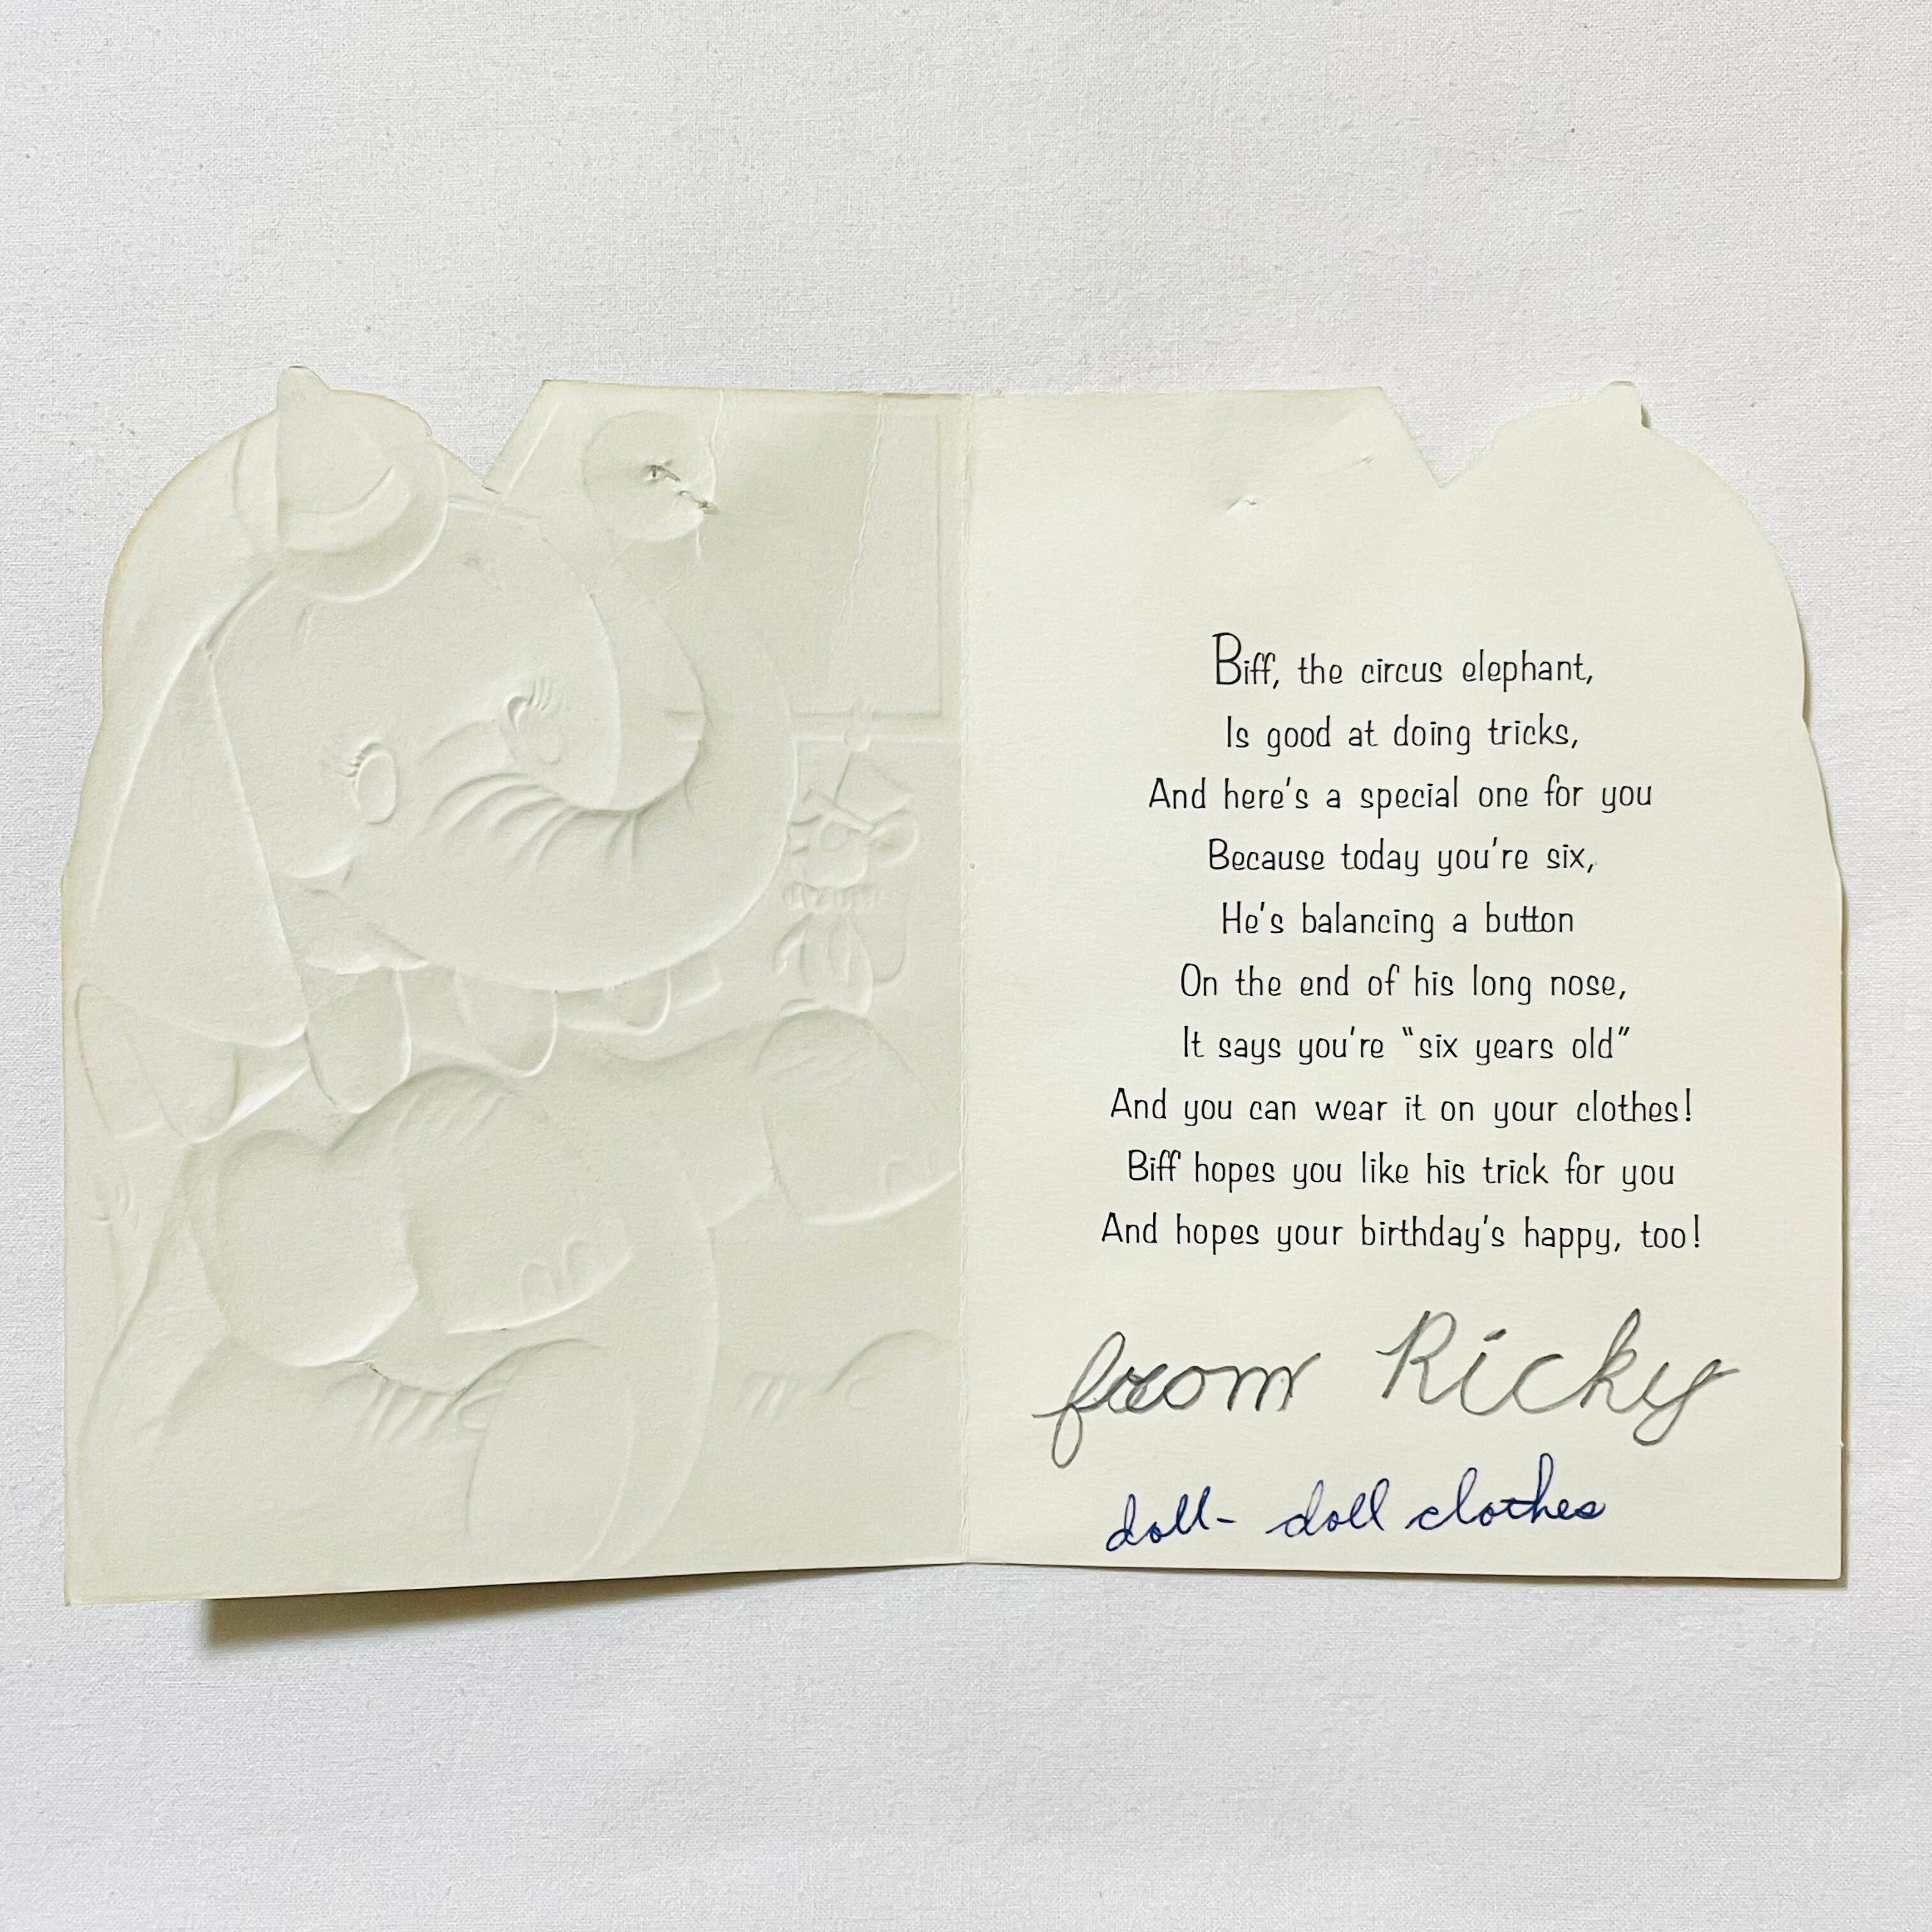 Biff, the circus elephant,
Is good at doing tricks,
And here's a special one for you
Because today you're six,
He's balancing a button
On the end of his long nose,
It says you're "six years old"
And you can wear it on your clothes!
Biff hopes you like his trick for you
And hopes your birthday's happy, too!
from Ricky
doll- doll clothes